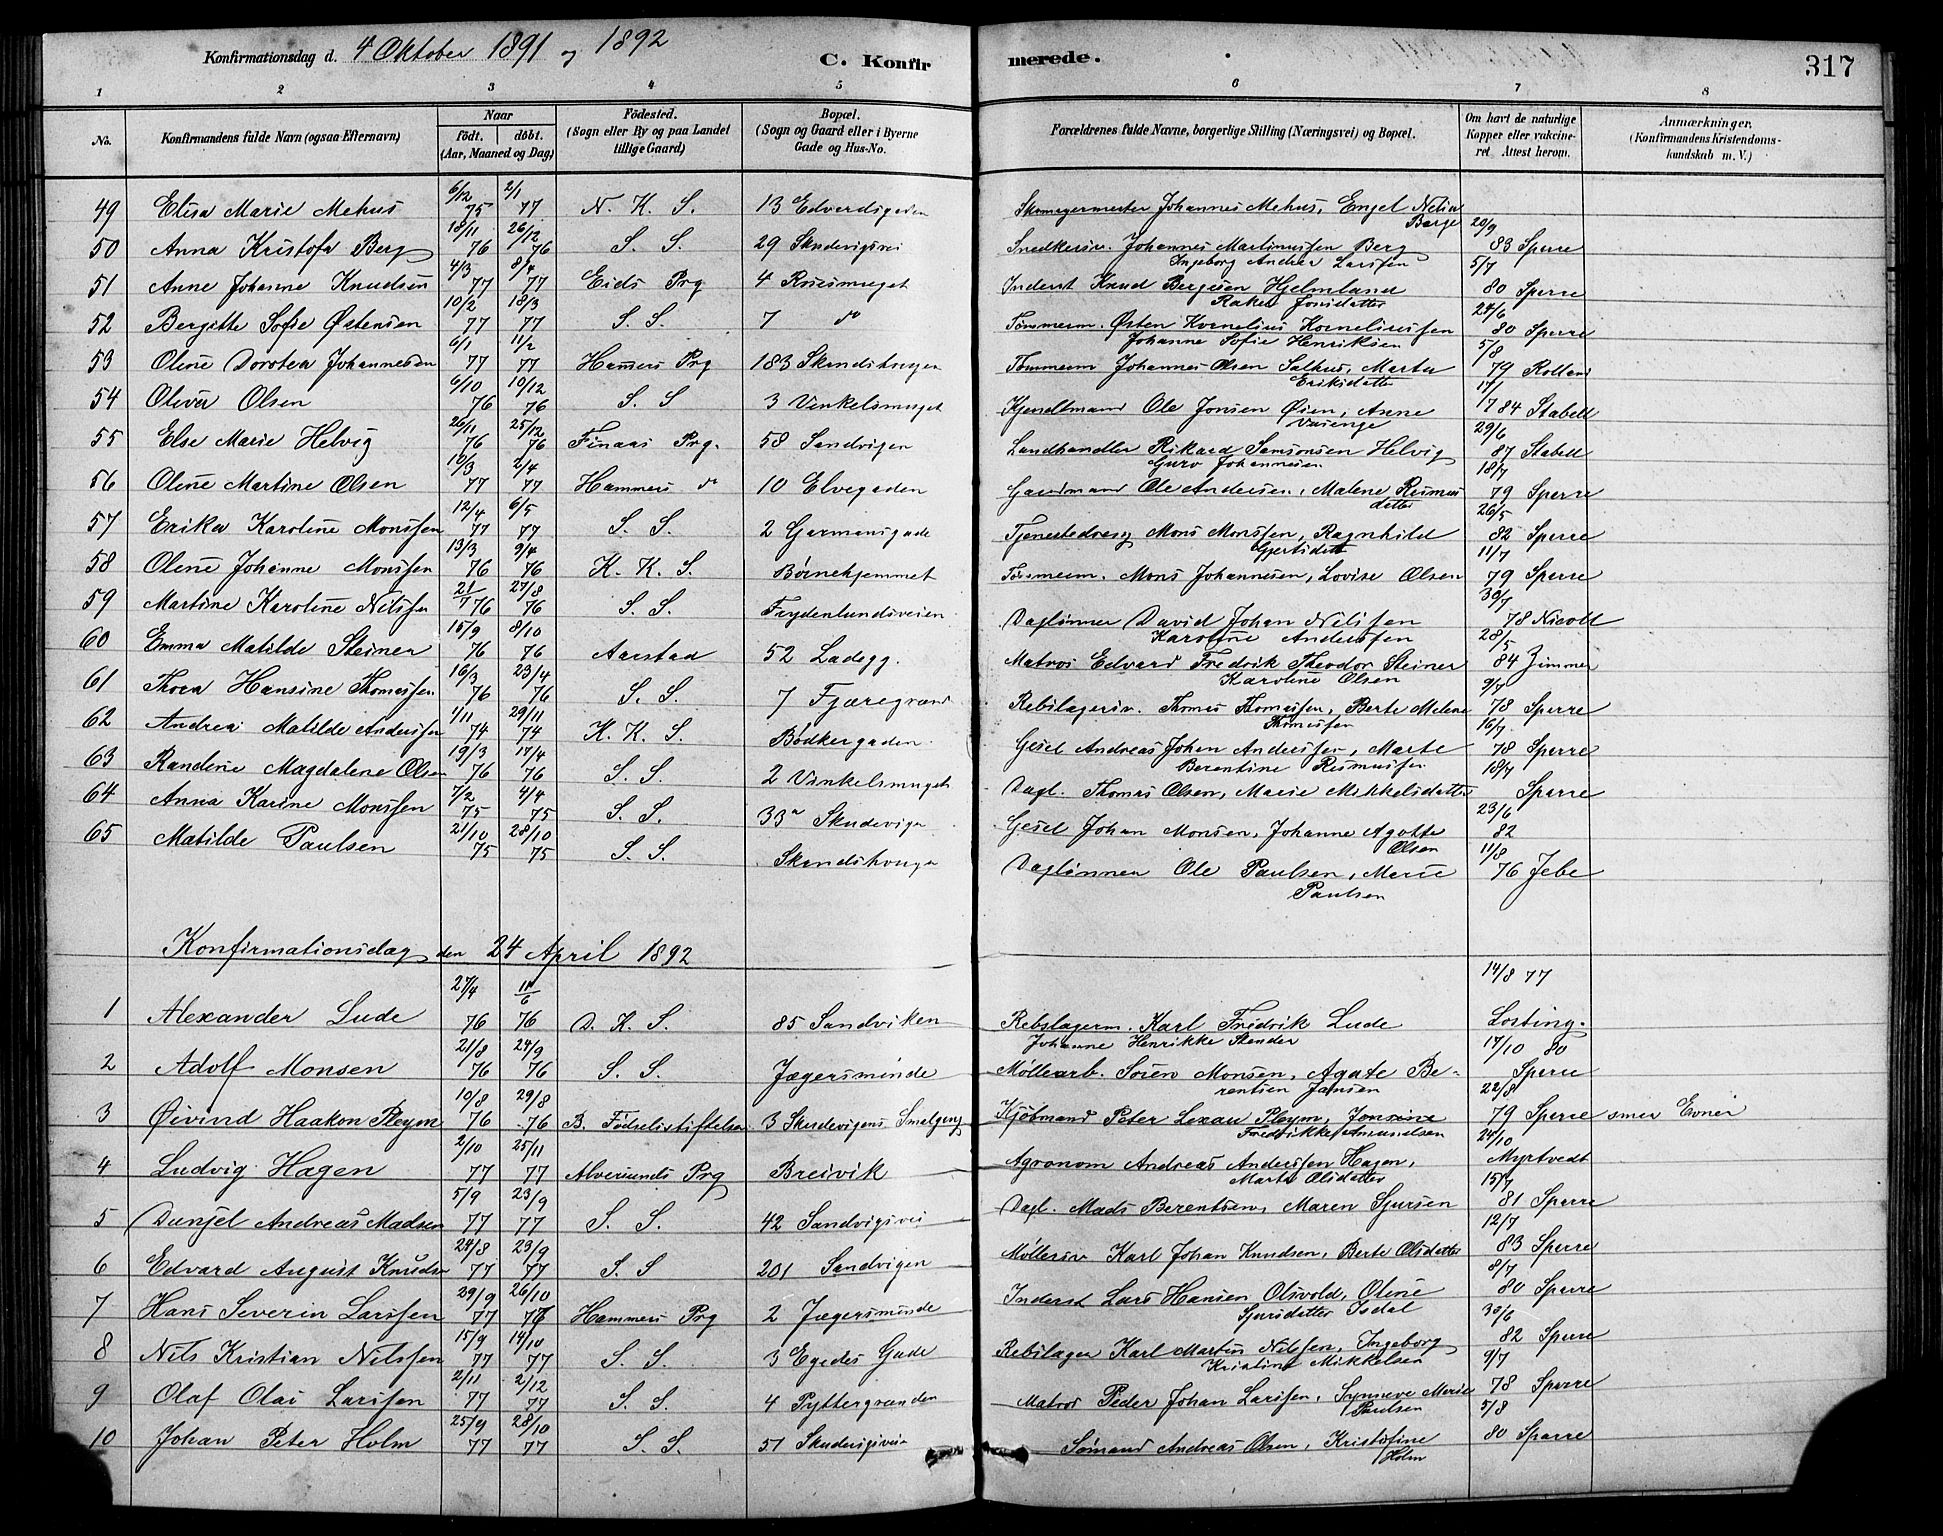 Konfirmationsdag d. 4 Oktober 1891 og 1892 C. Konfirmerede. 317
1 2 3 4 5 6 7 8
No. Konfirmandens fulde Navn (ogsaa Efternavn) Naar født. døbt. (Aar, Maaned og Dag) Födested. (Sogn eller By og paa Landet tillige Gaard) Bopæl. (Sogn og Gaard eller i Byerne Gade og Hus-No. Forældrenes fulde Navne, borgerlige Stilling (Næringsvei) og Bopæl. Om havt de naturlige Kopper eller vakcineret Attest herom. Anmærkninger, (Konfirmandens Kristendomskundskab m. V.)
49 Elisa Marie Mehus 6/12 75 2/1 77 N. K. S. 13 Edvardsgaden Skomagermester Johannes Mehus, Engel Berge
50 Anna Kristofa Berg 18/11 76 26/12 76 S. S. 29 Skudevigsvei Snedkersv. Johannes Martinussen Berg Ingeborg Andrea Larssen 20/9 83 Sperre
51 Anne Johanne Knudsen 4/3 77 8/4 77 Eids Prg 4 Inderst Knud Bergesen Hjelmland Rakel Jonsdatter 5/7 80 Sperre
52 Bergitte Sofie Østensen 10/2 77 18/3 77 S. S. 7 do Tømmerm. Østen Kornelius Korneliussen Johanne Sofie Henriksen 24/6 80 Sperre
53 Oline Dorotea Johannesen 6/1 77 11/2 77 Hamers Prg 183 Skandsehougen Tømmerm Johannes Olsen Salhus, Marta Eriksdatter 5/8 79 Rolland
54 Oliver Olsen 6/10 76 10/12 76 S. S 3 Vinkelsmuget Ole Jonsen Øien, Anne 17/1 84 Stabell
55 Else Marie Helvig 26/11 76 25/12 76 Finaas Prg. 58 Sandvigen Landhandler Rikard Samsonsen Helvig Guro Johannesen 29/6 87 Stabell
56 Oline Martine Olsen 10/3 77 2/4 77 Hammers do 10 Elvegaden Gaardmand Ole Andersen, Malene Rasmusdatter 18/7 79 Sperre
57 Erika Karoline Monssen 12/4 77 6/5 77 S. S. 2 Garmansgade Tjenestedreng Mons Monssen, Ragnhild Gjertsdatt 26/5 82 Sperre
58 Oline Johanne Monssen 13/3 76 9/4 76 K. K. S. Børnehjemmet Tømmerm. Mons Johannesen, Lovise Olsen 11/7 79 Sperre
59 Martine Karoline Nilssen 21/7 76 27/8 76 S. S. Frydenlundsveien Daglønner David Johan Nilssen Karoline Anderssen 30/7 78 Nicoll
60 Emma Matilde Steiner 15/9 76 8/10 76 Aarstad 52 Ladegg. Matros Edvard Fredrik Theodor Steiner Karoline Olsen 28/5 84 Zimmer
61 Thora Hansine Thomessen 16/3 76 23/4 76 S. S. 7 Fjæregrand Rebslagersv. Thomas Thomassen, Berte Malene Thomassen 9/7 78 Sperre
62 Andrea Matilde Anderssen 1/11 74 29/11 74 K. K. S. Bødkergaden Gesel Andreas Johan Anderssen, Marte Berentine Rasmussen 16/7 78 Sperre
63 Randine Magdalene Olsen 19/3 76 17/4 76 S. S. 2 Vinkelsmuget Dagl. Thomas Olsen, Marie Mikkelsdatter 18/7 Sperre
64 Anna Karine Monssen 7/2 75 4/4 75 S. S. 33a Skudevigen Gesel Johan Monsen, Johanne Agatte Olsen 23/6 82
65 Matilde Paulsen 21/10 75 28/10 75 S. S. Skandshougen Daglønner Ole Paulsen, Marie Paulsen 11/8 76 Jebe
Konfirmationsdag den 24 April 1892
1 Alexander Lude 27/4 76 11/6 76 D. K. S. 85 Sandviken Rebslagerm. Karl Fredrik Lude Johanne Henrikke Stender 14/8 77 Losting.
2 Adolf Monsen 21/8 76 24/9 76 S. S. Jægersminde Møllearb. Søren Monsen, Agate Berentsen Jansen 17/10 80 Sperre
3 Øivind Haakon Pleym 10/8 76 29/8 76 B. Fødselsstiftelse 3 Skudevigens Smalgang Kjøbmand Peter Lexau Pleym, Jonsine Fredrikke Amundsen 22/8 79 Sperre smaa Evner
4 Ludvig Hagen 2/10 77 25/11 77 Alversunds Prg Breivik Agronom Andreas Anderssen Hagen, Marta Olsdatter 24/10 Myrtvedt
5 Danjel Andreas Madsen 5/9 77 23/9 77 S. S. 42 Sandvigsvei Dagl. Mads Berentsen, Maren Sjursen 15/7 81 Sperre
6 Edvard August Knudsen 24/8 77 23/9 77 S. S 201 Sandvigen Møllersv Karl Johan Knudsen, Berte Olsdatter 12/7 83 Sperre
7 Hans Severin Larssen 29/9 77 26/10 77 Hammers Prg 2 Jægersminde Inderst Lars Hansen Olsvold, Oline Sjursdatter Isdal 8/7 80 Sperre
8 Nils Kristian Nilssen 15/9 77 14/10 77 S. S. 3 Egedes Gade Rebslager Karl Martin Nilssen, Ingeborg Kristine Mikkelsen 30/6 82 Sperre
9 Olaf Olai Larssen 2/11 77 2/12 77 S. S. 4 Pyttergranden Matros Peder Johan Larssen, Synneve Marie Paulsen 9/7 78 Sperre
10 Johan Peter Holm 25/9 77 28/10 77 S. S. 51 Skudevigsveien Sømand Andreas Olsen, Kristofine Holm 5/8 80 Sperre